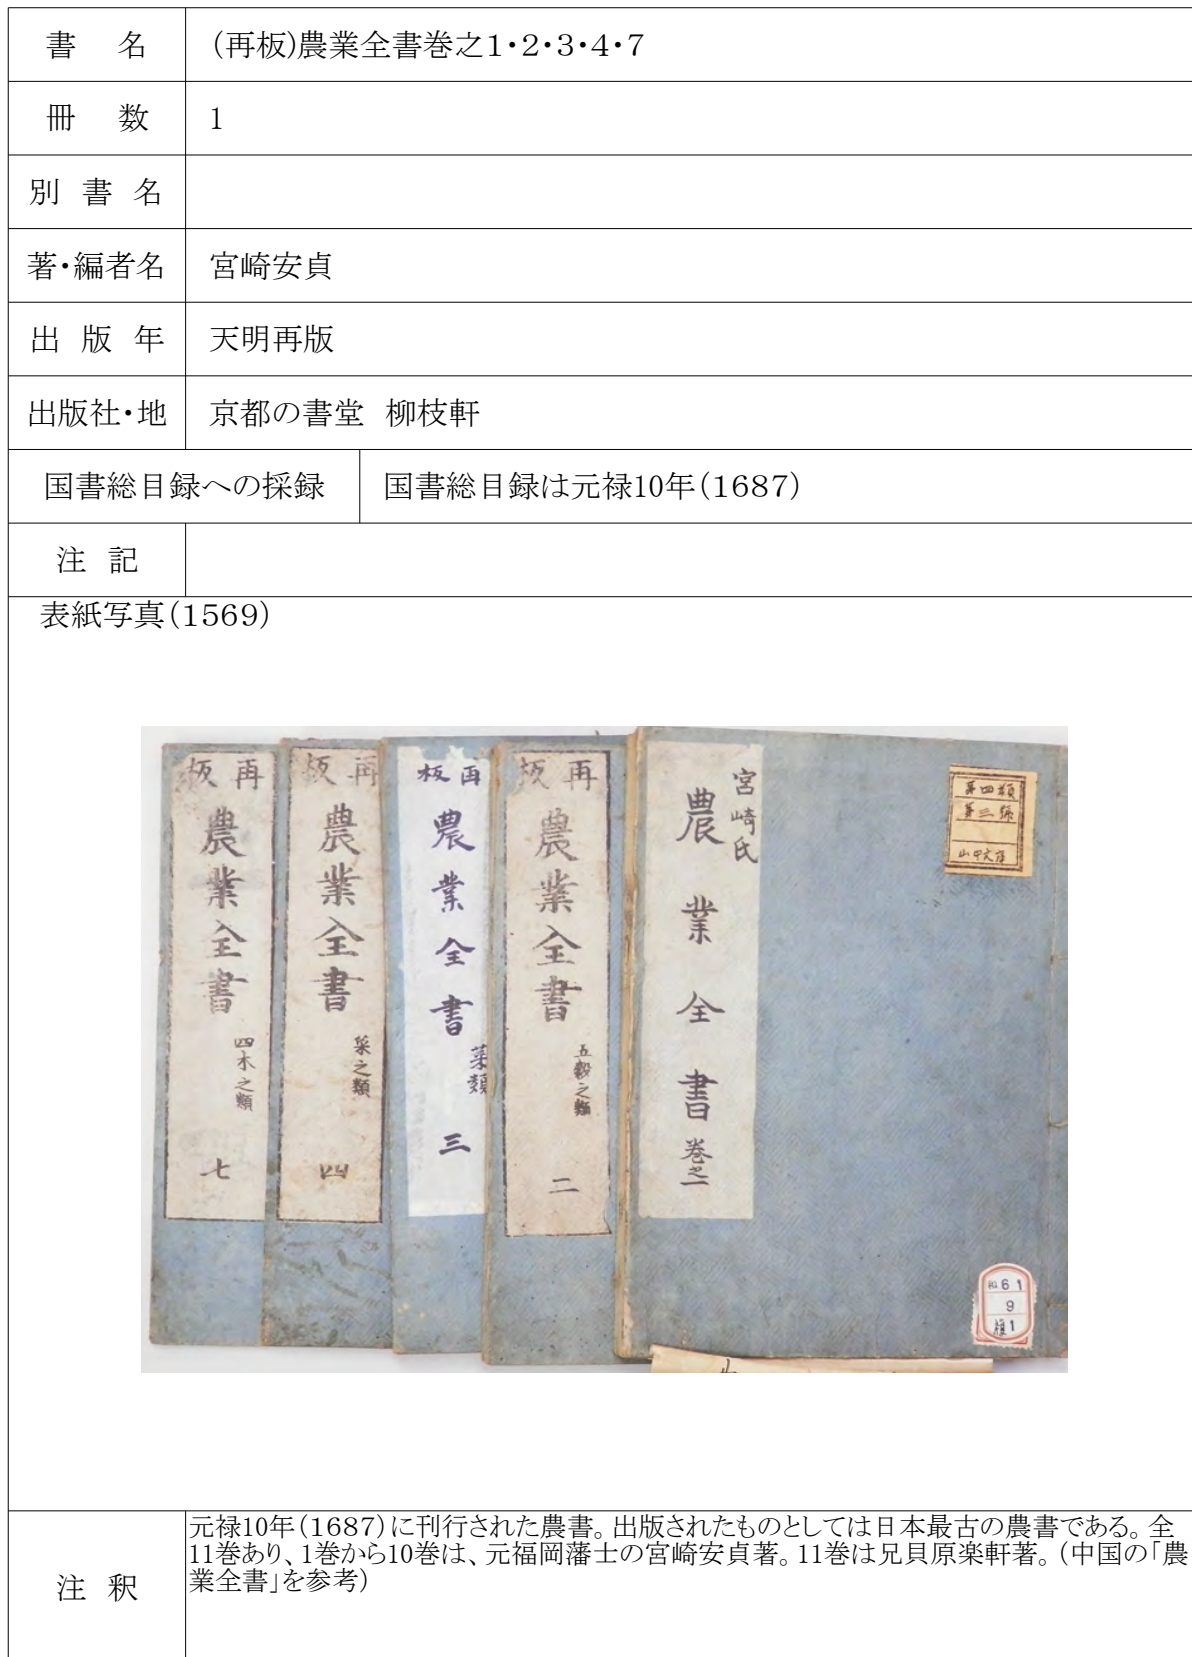 書名 (再板)農業全書巻之1・2・3・4・7
冊数 1
別書名
著・編者名 宮崎安貞
出版年 天明再版
出版社・地 京都の書堂 柳枝軒
国書総目録への採録 国書総目録は元禄10年(1687)
注記
表紙写真(1569)
宮崎氏
農業全書 巻之一
第四類
第三號
山中文庫
61
9
1
再板
農業全書
五穀之類
二
再板
農業全書
菜類
三
再板
農業全書
菜之類
四
再板
農業全書
四木之類
七
注釈
元禄10年(1687)に刊行された農書。出版されたものとしては日本最古の農書である。全
11巻あり、1巻から10巻は、元福岡藩士の宮崎安貞著。11巻は兄貝原楽軒著。(中国の「農
業全書」を参考)